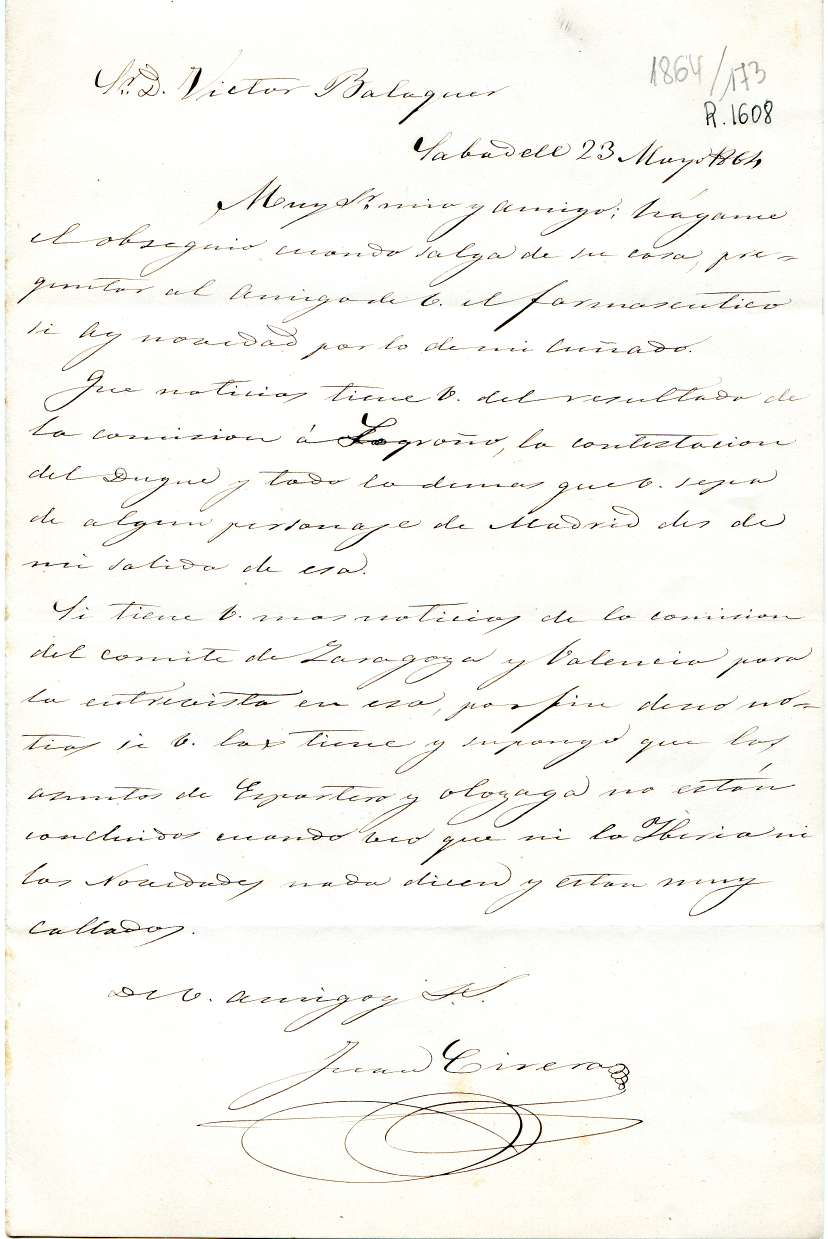 1864/173
R.1608
Sr. D. Victor Balaguer
Sabadell 23 Mayo 1864
Muy Sr. mio y amigo; hágame
el obsequio cuando salga de su casa, pre-
guntar al amigo de V. el farmaseutico
si ay novedad por lo de mi cuñado.
Que noticias tiene V. del resultado de
la comision á Logroño, la contestacion
del Duque y todo lo demas que V. sepa
de algun personaje de Madrid des de
mi salida de esa.
Si tiene V. mas noticias de la comision
del comite de Zaragoza y Valencia para
la entrevista en esa, por fin deseo no-
tias si V. las tiene y supongo que los
asuntos de Espartero y Olozaga no están
concluidos cuando veo que ni la Iberia ni
las Novedades nada dicen y estan muy
callados.
De V. amigo y S.S.
Juan Cirera